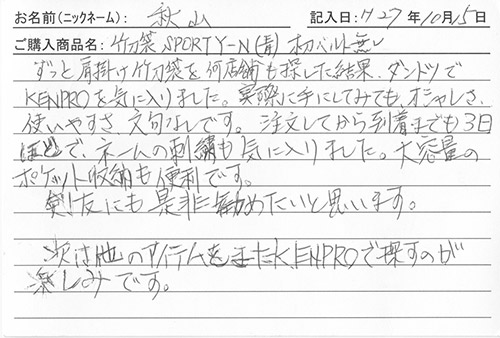 お名前(ニックネーム): 秋山 記入日:H27年10月15日
ご購入商品名: 竹刀袋 SPORTY-N(青) 初ベルト無し
ずっと肩掛け竹刀袋を何店舗も探した結果、ダントツで
KENPROを気に入りました。実際に手にしてみてもオシャレさ、
使いやすさ、文句なしです。注文してから到着までも3日
ほどで、ネームの刺繍も気に入りました。大容量の
ポケット収納も便利です。
剣友にも是非勧めたいと思います。
次は他のアイテムをまたKENPROで探すのが
楽しみです。